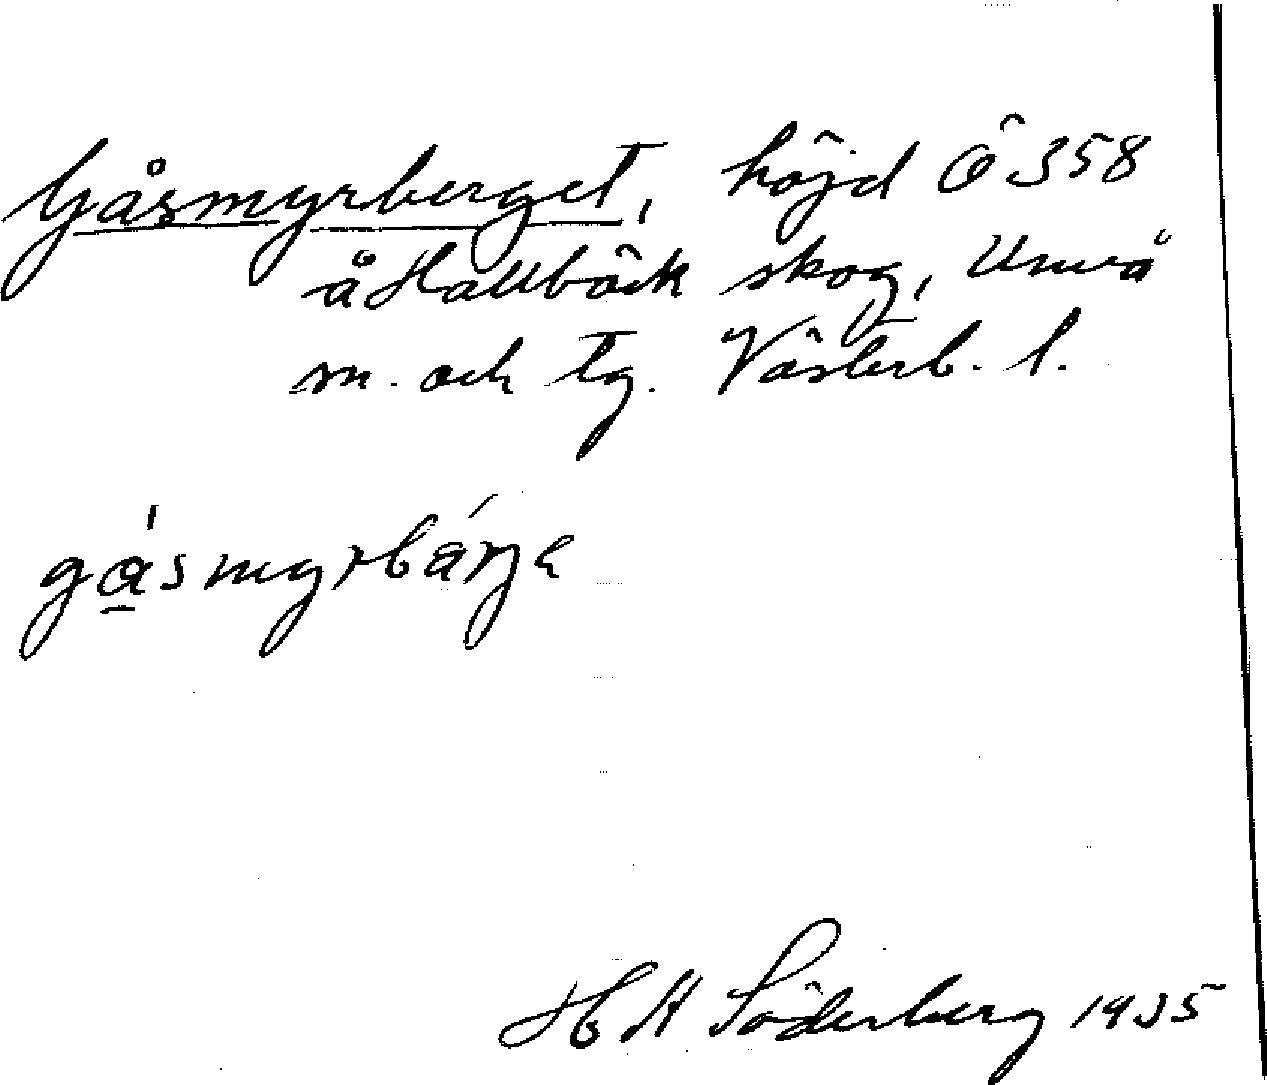 Gåsmyrberget, höjd Ö 358
å Hällbäck skog, Umeå
m. och tg. Västerb. l.
gåsmyrbärje
H H Söderberg 1935